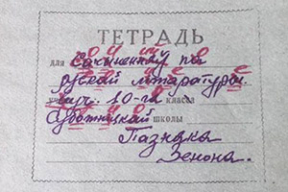 ТЕТРАДЬ
для Сочинений по
русской литературы
уч. 10-го класса
Субботницкой школы
Пазняка
Зенона.